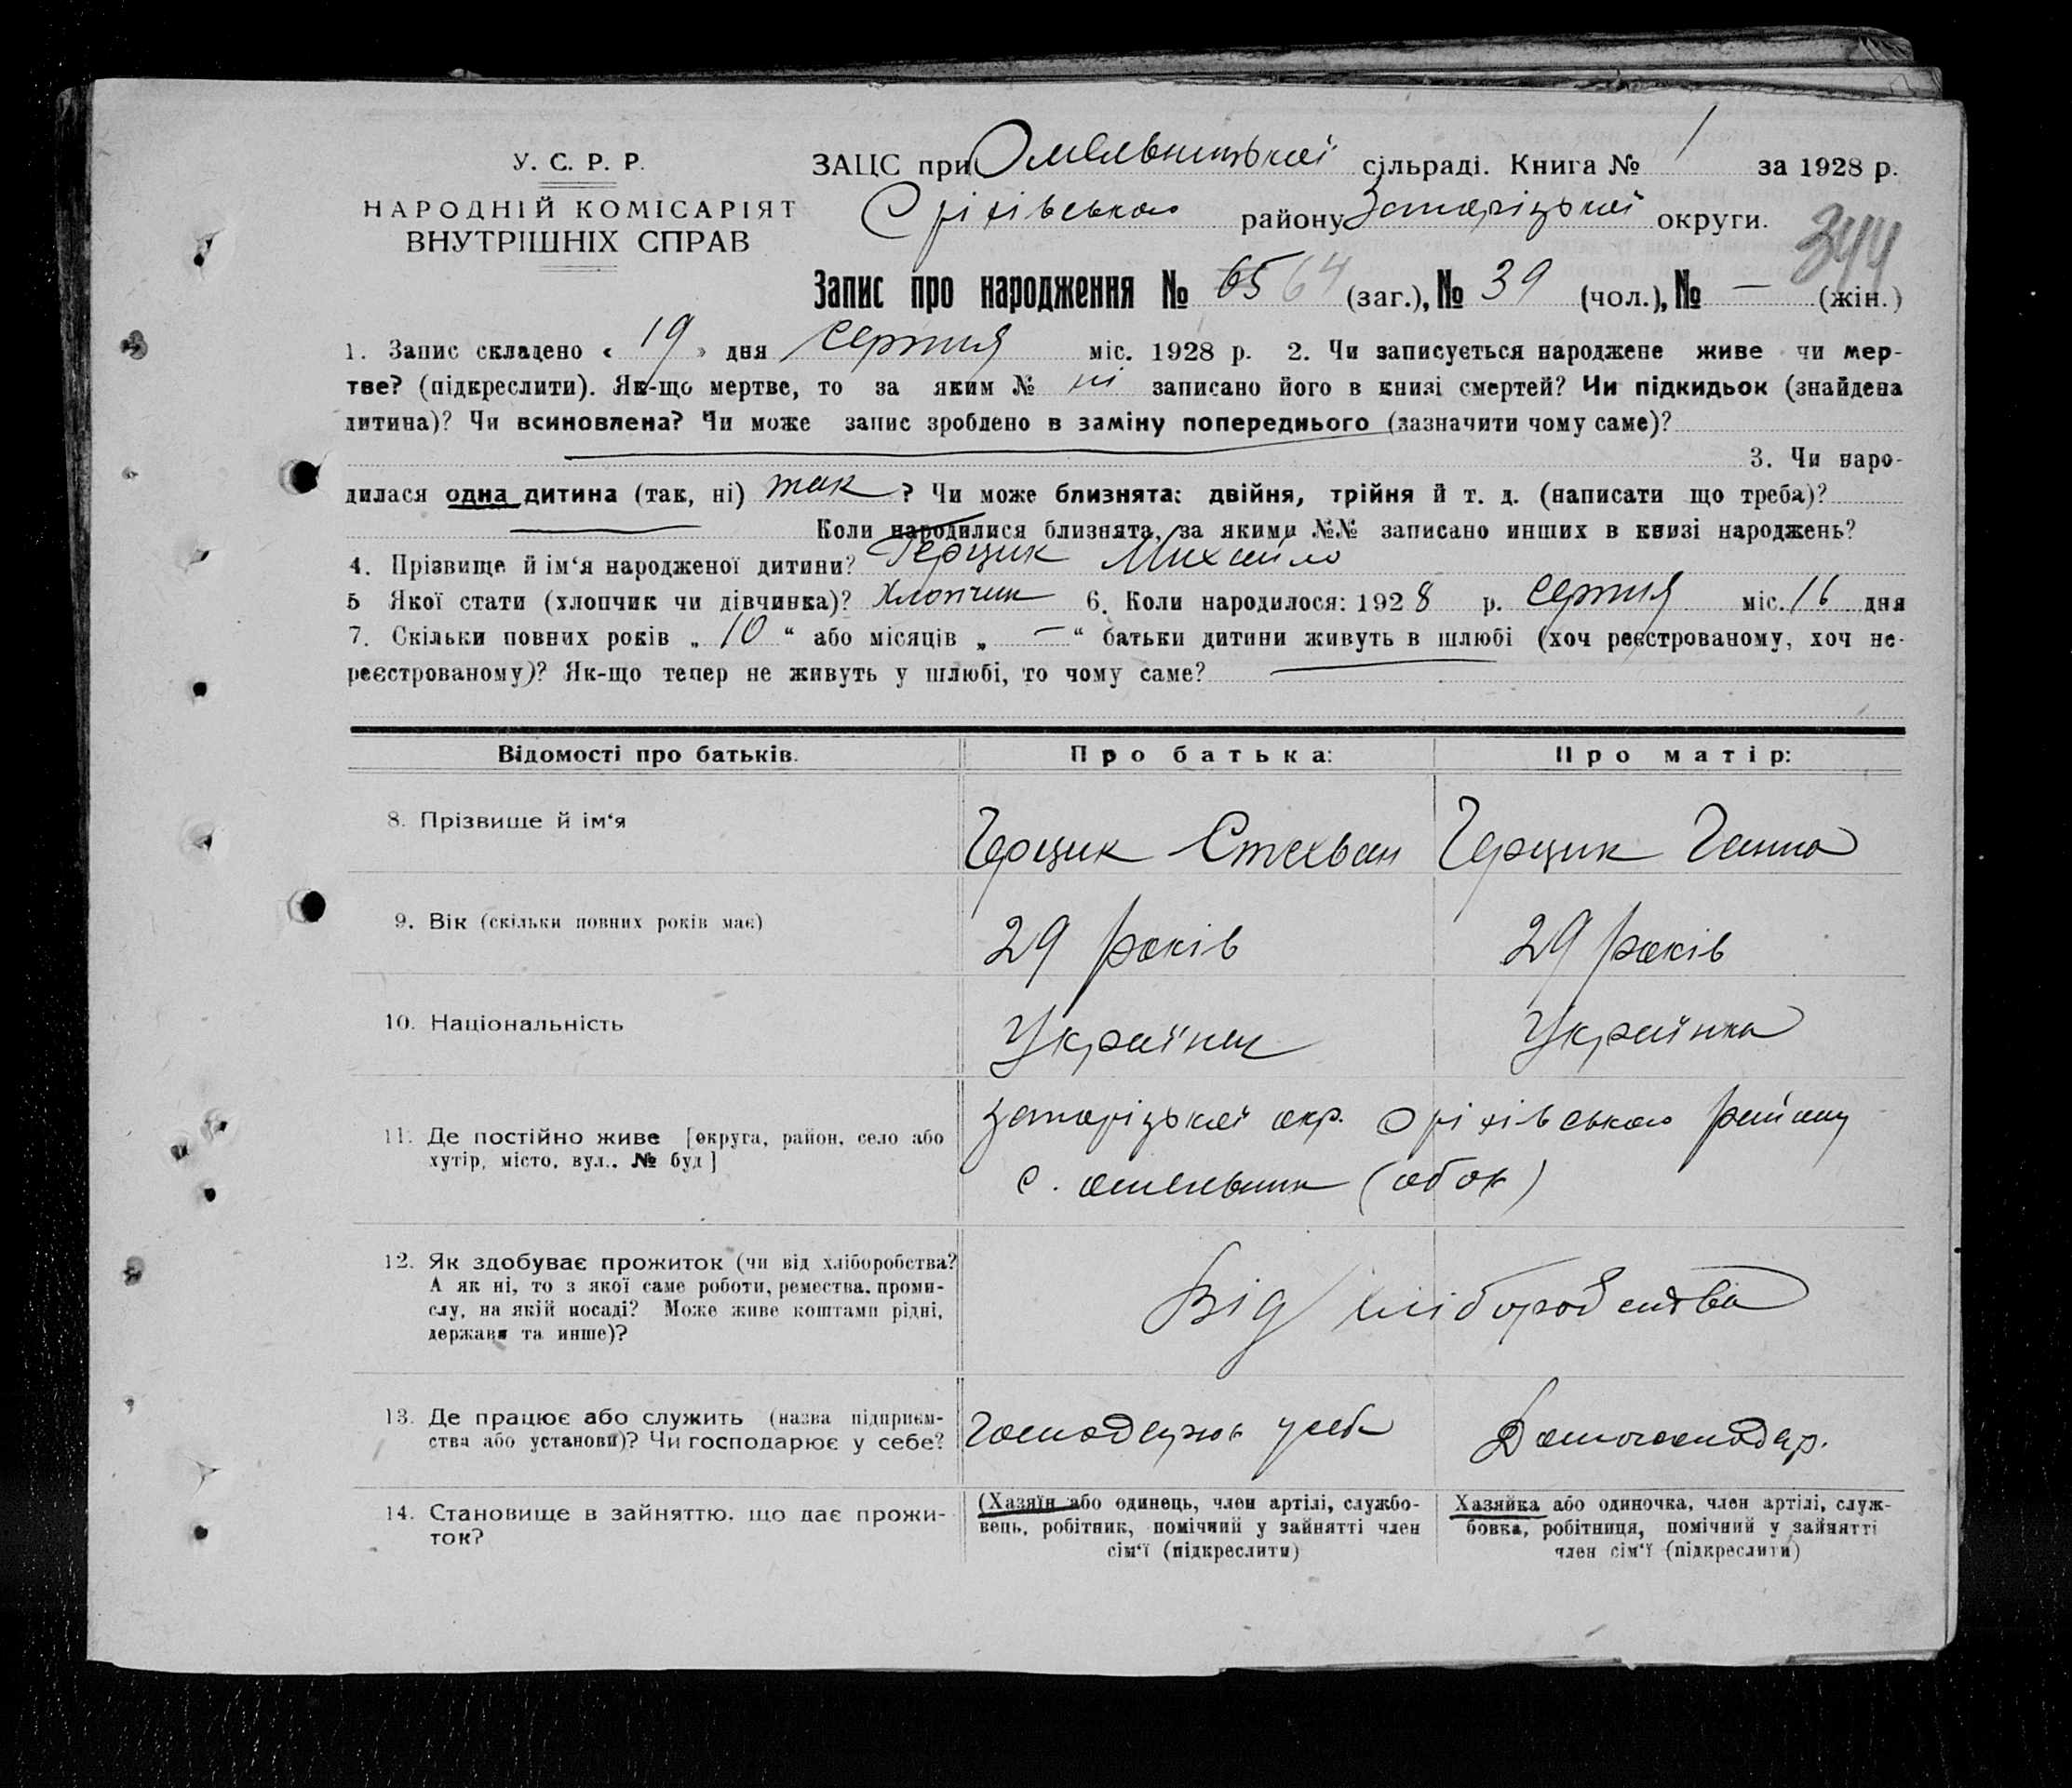 У. С. Р. Р.
НАРОДНІЙ КОМІСАРІЯТ
ВНУТРІШНІХ СПРАВ
ЗАЦС при Омельницької сільраді. Книга № 1 за 1928 р.
Оріхівського району Запоріцької округи.
344
Запис про народження № 65 64 (заг.), № 39 (чол.), № — (жін.)
1. Запис складено « 19 » дня серпня міс. 1928 р. 2. Чи записується народжене живе чи мер-
тве? (підкреслити). Як-що мертве, то за яким № ні записано його в книзі смертей? Чи підкидьок (знайдена
дитина)? Чи всиновлена? Чи може запис зроблено в заміну попереднього (зазначити чому саме)?
3. Чи наро-
дилася одна дитина (так, ні) так ? Чи може близнята: двійня, трійня й т. д. (написати що треба)?
Коли народилися близнята, за якими №№ записано инших в книзі народжень?
4. Прізвище й ім‘я народженої дитини? Герцик Михайло
5 Якої стати (хлопчик чи дівчинка)? Хлопчик 6. Коли народилося: 1928 р. серпня міс. 16 дня
7. Скільки повних років „ 10 “ або місяців „ — “ батьки дитини живуть в шлюбі (хоч реєстрованому, хоч не-
реєстрованому)? Як-що тепер не живуть у шлюбі, то чому саме?
Відомості про батьків. Про батька: Про матір:
8. Прізвище й ім‘я Герцик Стехван Герцик Ганна
9. Вік (скільки повних років має) 29 років 29 років
10. Національність Українец Українка
11. Де постійно живе [округа, район, село або
хутір, місто, вул., № буд]
Запоріцької окр. Оріхівського району
с. Омельник (обоє)
12. Як здобуває прожиток (чи від хліборобства?
А як ні, то з якої саме роботи, ремества, проми-
слу, на якій посаді? Може живе коштами рідні,
держави та инше)?
Від хліборобства
13. Де працює або служить (назва підприєм-
ства або установи)? Чи господарює у себе?
Господарює у себе Домогосподар.
14. Становище в зайняттю, що дає прожи-
ток?
(Хазяїн або одинець, член артілі, службо-
вець, робітник, помічний у зайнятті член
сім‘ї (підкреслити)
Хазяйка або одиночка, член артілі, служ-
бовка, робітниця, помічний у зайнятті
член сім‘ї (підкреслити)